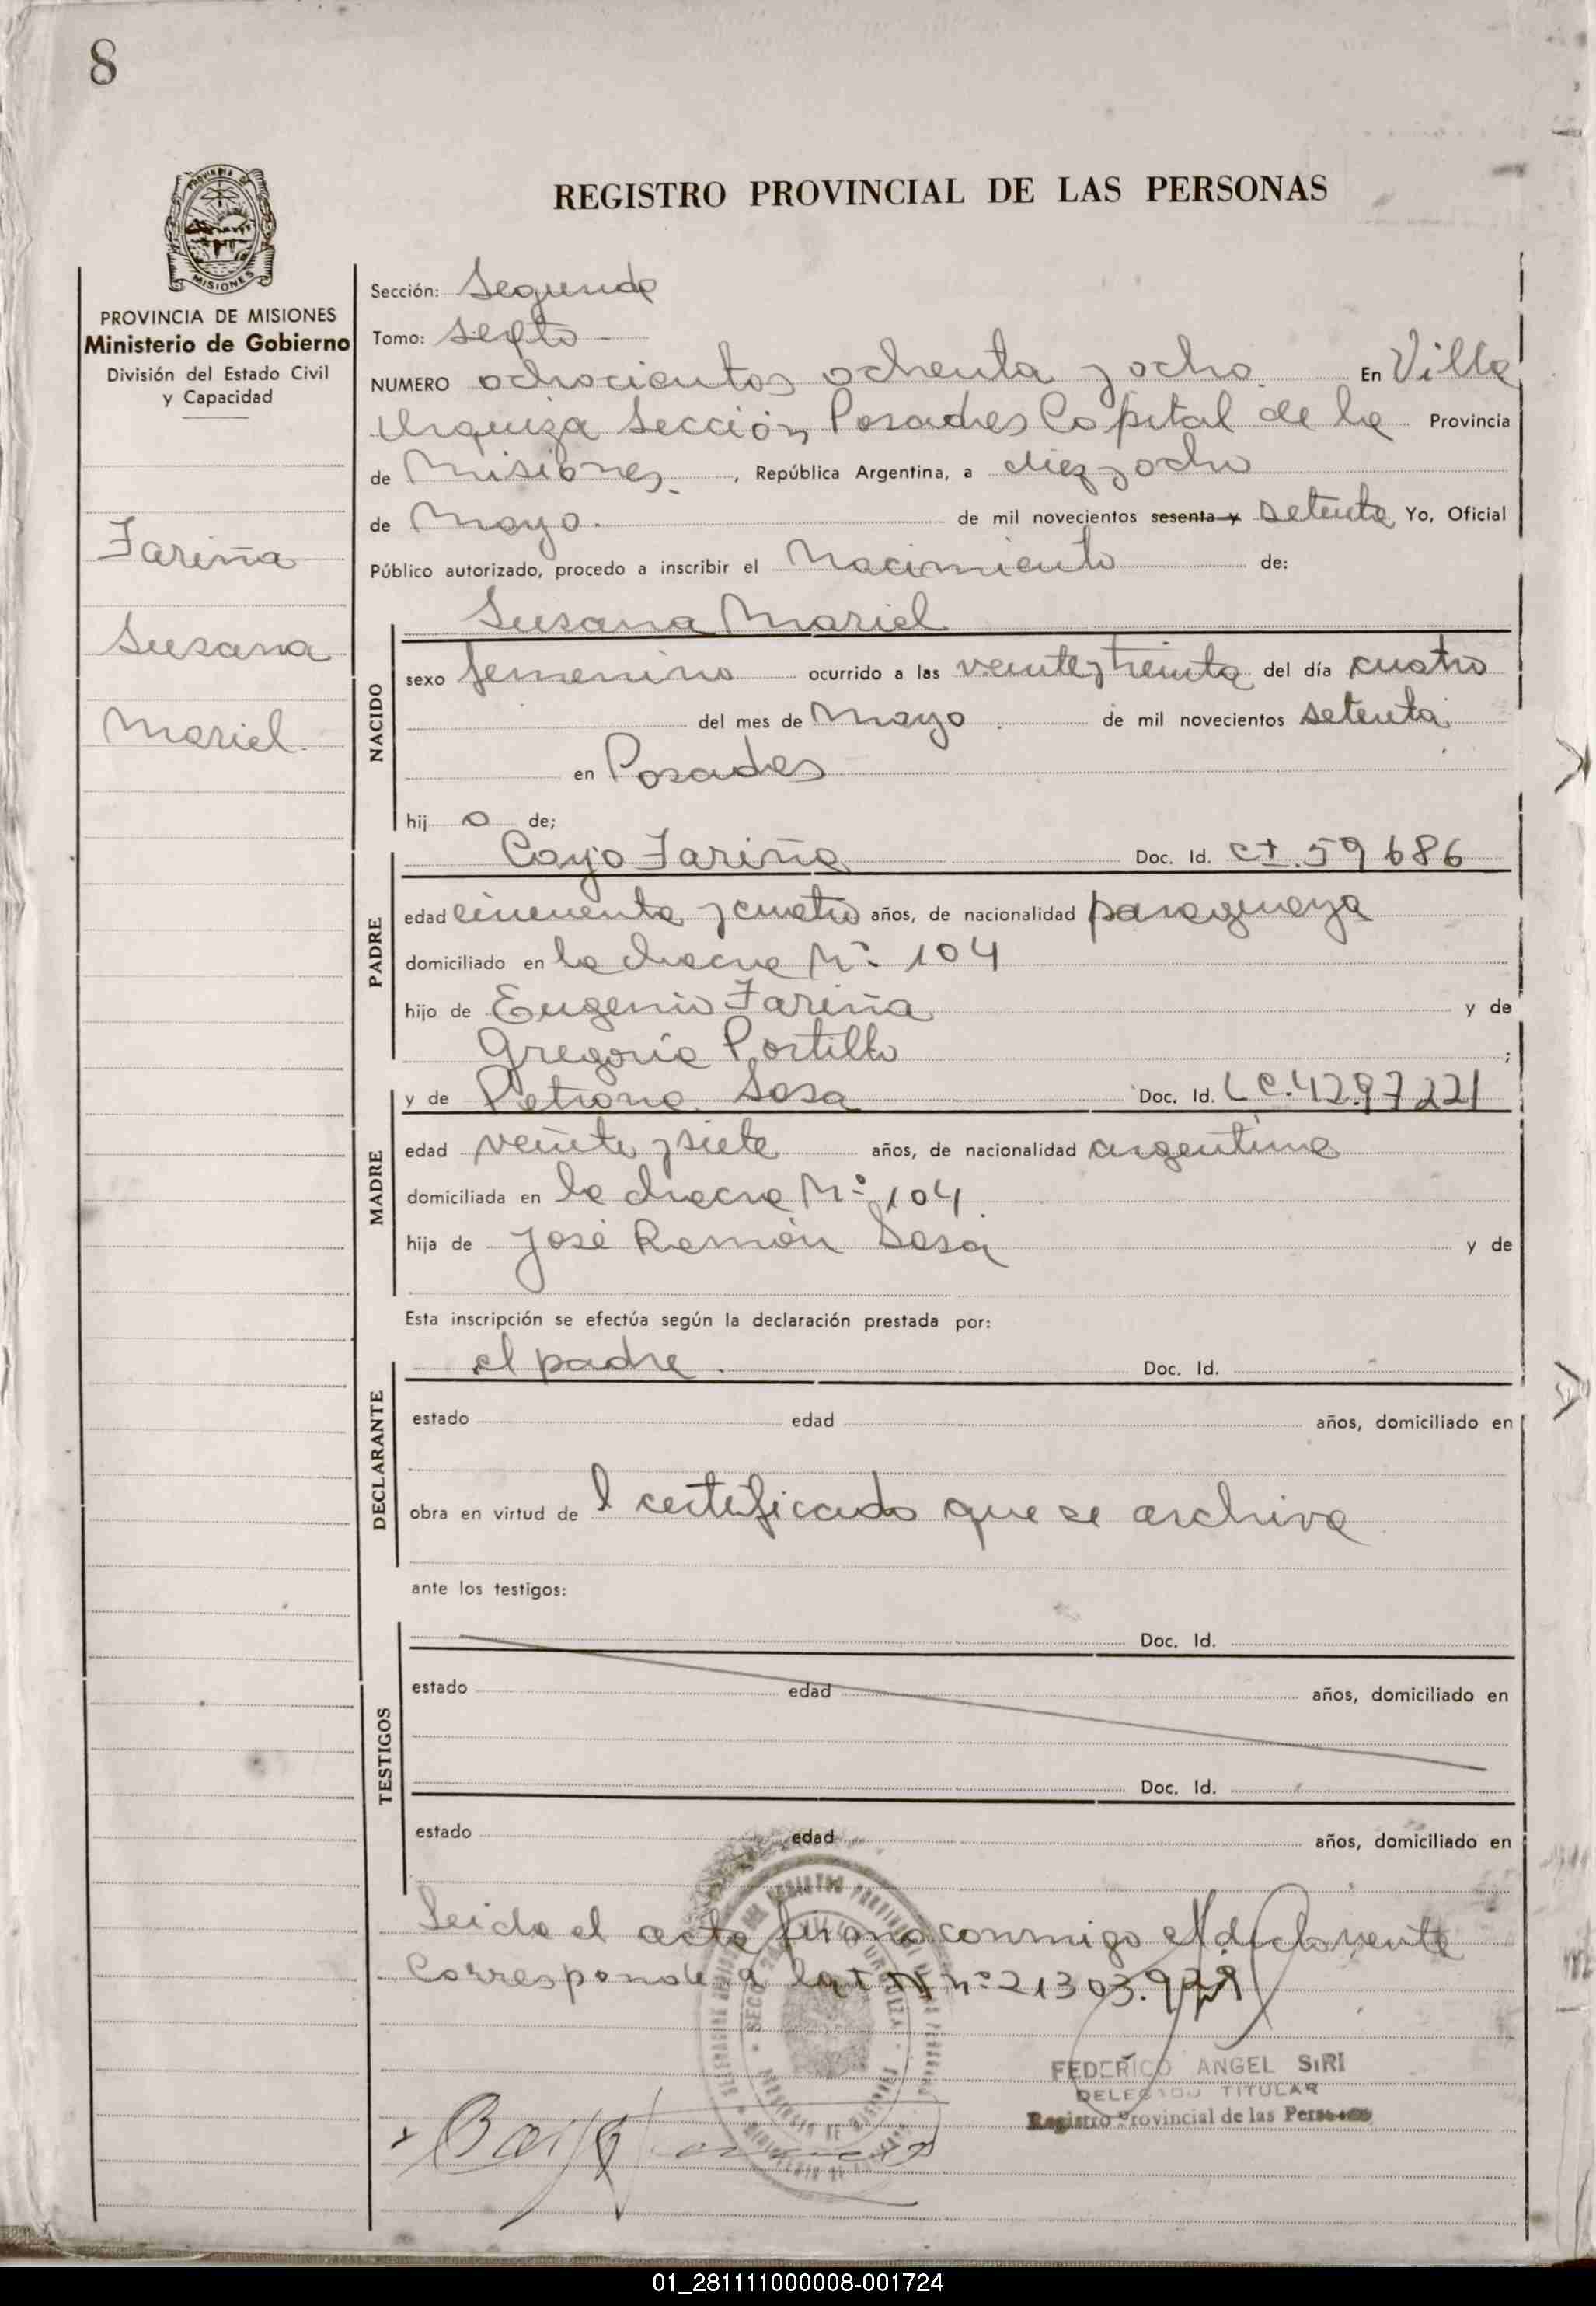 8
REGISTRO PROVINCIAL DE LAS PERSONAS
PROVINCIA DE MISIONES
Ministerio de Gobierno
División del Estado Civil
y Capacidad
Fariña
Susana
Mariel.
Sección: Segunda
Tomo: sexto
NUMERO ochocientos ochenta y ocho. En Villa
Urquiza Sección Posadas Capital de la Provincia
de Misiones. , República Argentina, a diez y ocho
de Mayo. de mil novecientos sesenta y setenta Yo, Oficial
Público autorizado, procedo a inscribir el Nacimiento de:
NACIDO
Susana Mariel
sexo femenino ocurrido a las veinte y treinta del día cuatro
del mes de Mayo de mil novecientos setenta
en Posadas
hij a de;
PADRE
Cayo Fariña Doc. Id. CI. 59686
edad cincuenta y cuatro años, de nacionalidad paraguaya
domiciliado en la chacra Nº 104
hijo de Eugenio Fariña y de
Gregoria Portillo ;
MADRE
y de Petrona Sosa Doc. Id. LC. 4297221
edad veinte y siete años, de nacionalidad argentina
domiciliada en la chacra Nº 104
hija de José Ramón Sosa y de
Esta inscripción se efectúa según la declaración prestada por:
DECLARANTE
el padre. Doc. Id.
estado edad años, domiciliado en
obra en virtud de l certificado que se archiva
ante los testigos:
TESTIGOS
Doc. Id.
estado edad años, domiciliado en
Doc. Id.
estado edad años, domiciliado en
Leida el acta firma conmigo el declarante
Corresponde a nº 21303.929
FEDERICO ANGEL SIRI
DELEGADO TITULAR
Registro Provincial de las Personas
01_281111000008-001724